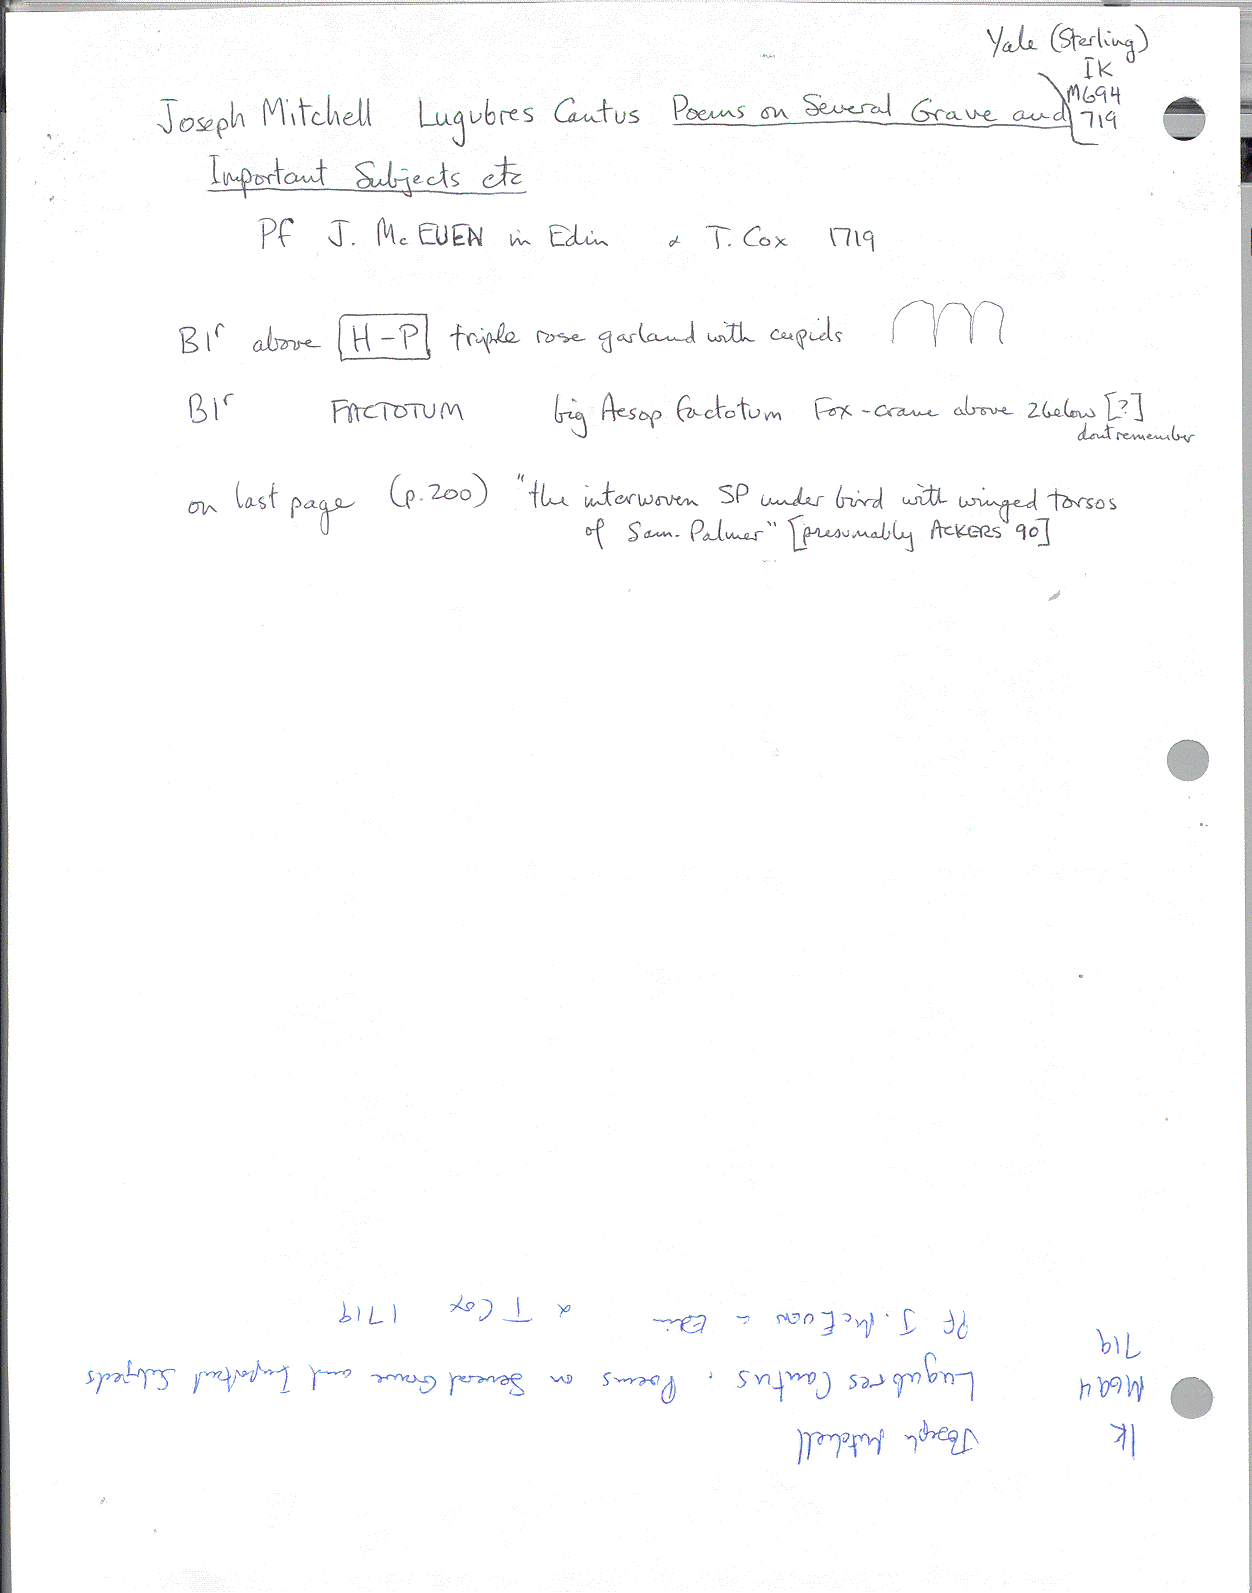 Yale (Sterling)
IK
M694
719
Joseph Mitchell Lugubres Cantus Poems on Several Grave and
Important Subjects etc
Pf J. McEUEN in Edin & T. Cox 1719
B1r above H-P triple rose garland with cupids
B1r FACTOTUM big Aesop factotum Fox-crane above 2 below [?]
dont remember
on last page (p. 200) "the interwoven SP under bird with winged torsos
of Sam. Palmer" [presumably ACKERS 90]
IK Joseph Mitchell
M694 Lugubres Cantus. Poems on Several Grave and Important Subjects
719 Pf J. McEuen in Edin & T Cox 1719